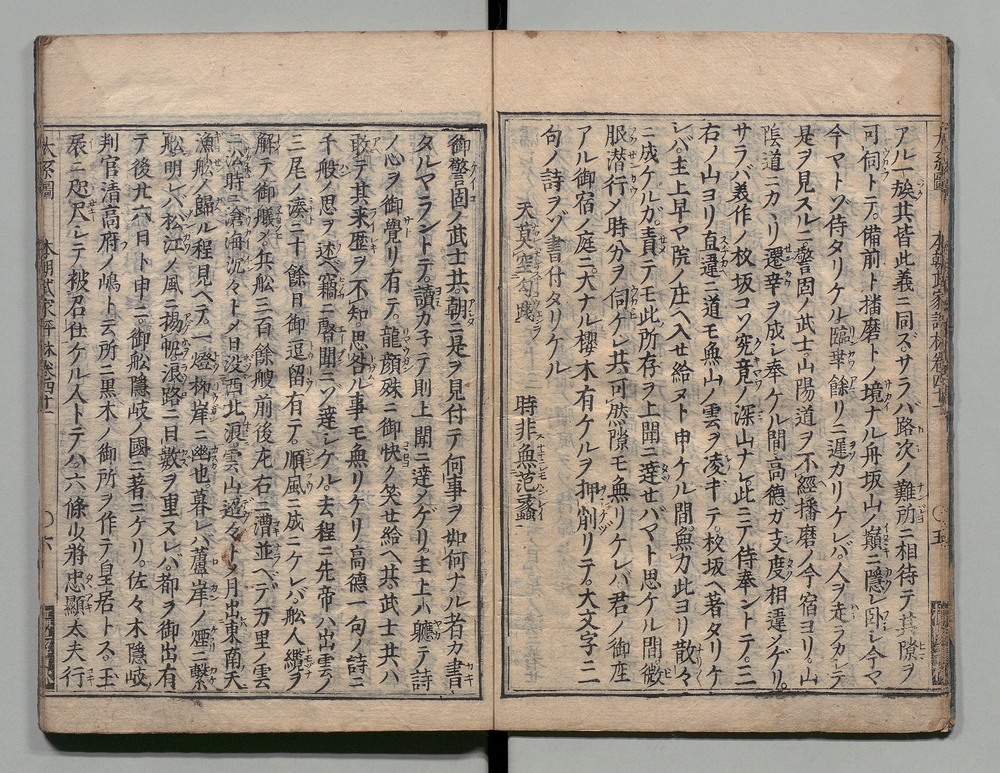 アル一族共皆此義ニ同ズサラバ路次ノ難所ニ相待テ其隙ヲ
可伺トテ。備前ト播磨トノ境ナル舟坂山ノ巓ニ隱レ臥シ今マ
今マトゾ侍タリケル臨幸餘リニ遲カリケレバ人ヲ走ラカシテ
是ヲ見スルニ警固ノ武士。山陽道ヲ不經播磨ノ今宿ヨリ。山
陰道ニカヽリ還幸ヲ成シ奉ケル間高德ガ支度相違シゲリ。
サラバ美作ノ杉坂コソ究竟ノ深山ナレ此ニテ待奉ントテ。三
石ノ山ヨリ直違ニ道モ無山ノ雲ヲ凌キテ。杉坂ヘ著タリケ
レバ。主上早ヤ院ノ庄ヘ入セ給ヌト申ケル間無力此ヨリ散々
ニ成ケルガ。責テモ此所存ヲ上聞ニ達セバヤト思ケル間微
服潜行シ時分ヲ伺ケレ共可然隙モ無リケレバ君ノ御座
アル御宿ノ庭ニ大ナル櫻木有ケルヲ押削リテ。大文字ニ一
句ノ詩ヲゾ書付タリケル
天莫空勾踐 時非無范蠡
御警固ノ武士共朝ニ是ヲ見付テ何事ヲ如何ナル者カ書
タルヤラントテ。讀カ子テ則上聞ニ達シゲリ。主上ハ軈テ詩
ノ心ヲ御覺リ有テ。龍顔殊ニ御快ク笑セ給ヘ共武士共ハ
敢テ其来歴ヲ不知。思咎ル事モ無リケリ。高德一句ノ詩ニ
千般ノ思ヲ述ヘ竊ニ聞ニゾ達シケル。去程ニ先帝ハ出雲ノ
三尾ノ湊ニ十餘日御逗留有テ。順風ニ成ニケレバ舩人纜ヲ
解テ御艤シテ兵舩三百餘艘前後左右ニ漕並ベテ万里ノ雲
ニ時ニ滄海沉々トメ日没西北浪雲山迢々トメ月出東南天
漁舩ノ歸ル程見ヘテ。一燈柳岸ニ幽也暮レバ蘆岸ノ煙ニ繫
舩明レバ松江ノ風ニ揚帆浪路ニ日數ヲ重ヌレバ。都ヲ御出有
テ後廿六日ト申ニ。御舩隱岐ノ國ニ著ニケリ。佐々木隱岐
判官清高府ノ嶋ト云所ニ黒木ノ御所ヲ作テ皇居トス。玉
扆ニ咫尺シテ被召仕ケル人トテハ。六條少将忠顯太夫行
大系圖 本朝武家評林卷四十一 〇六